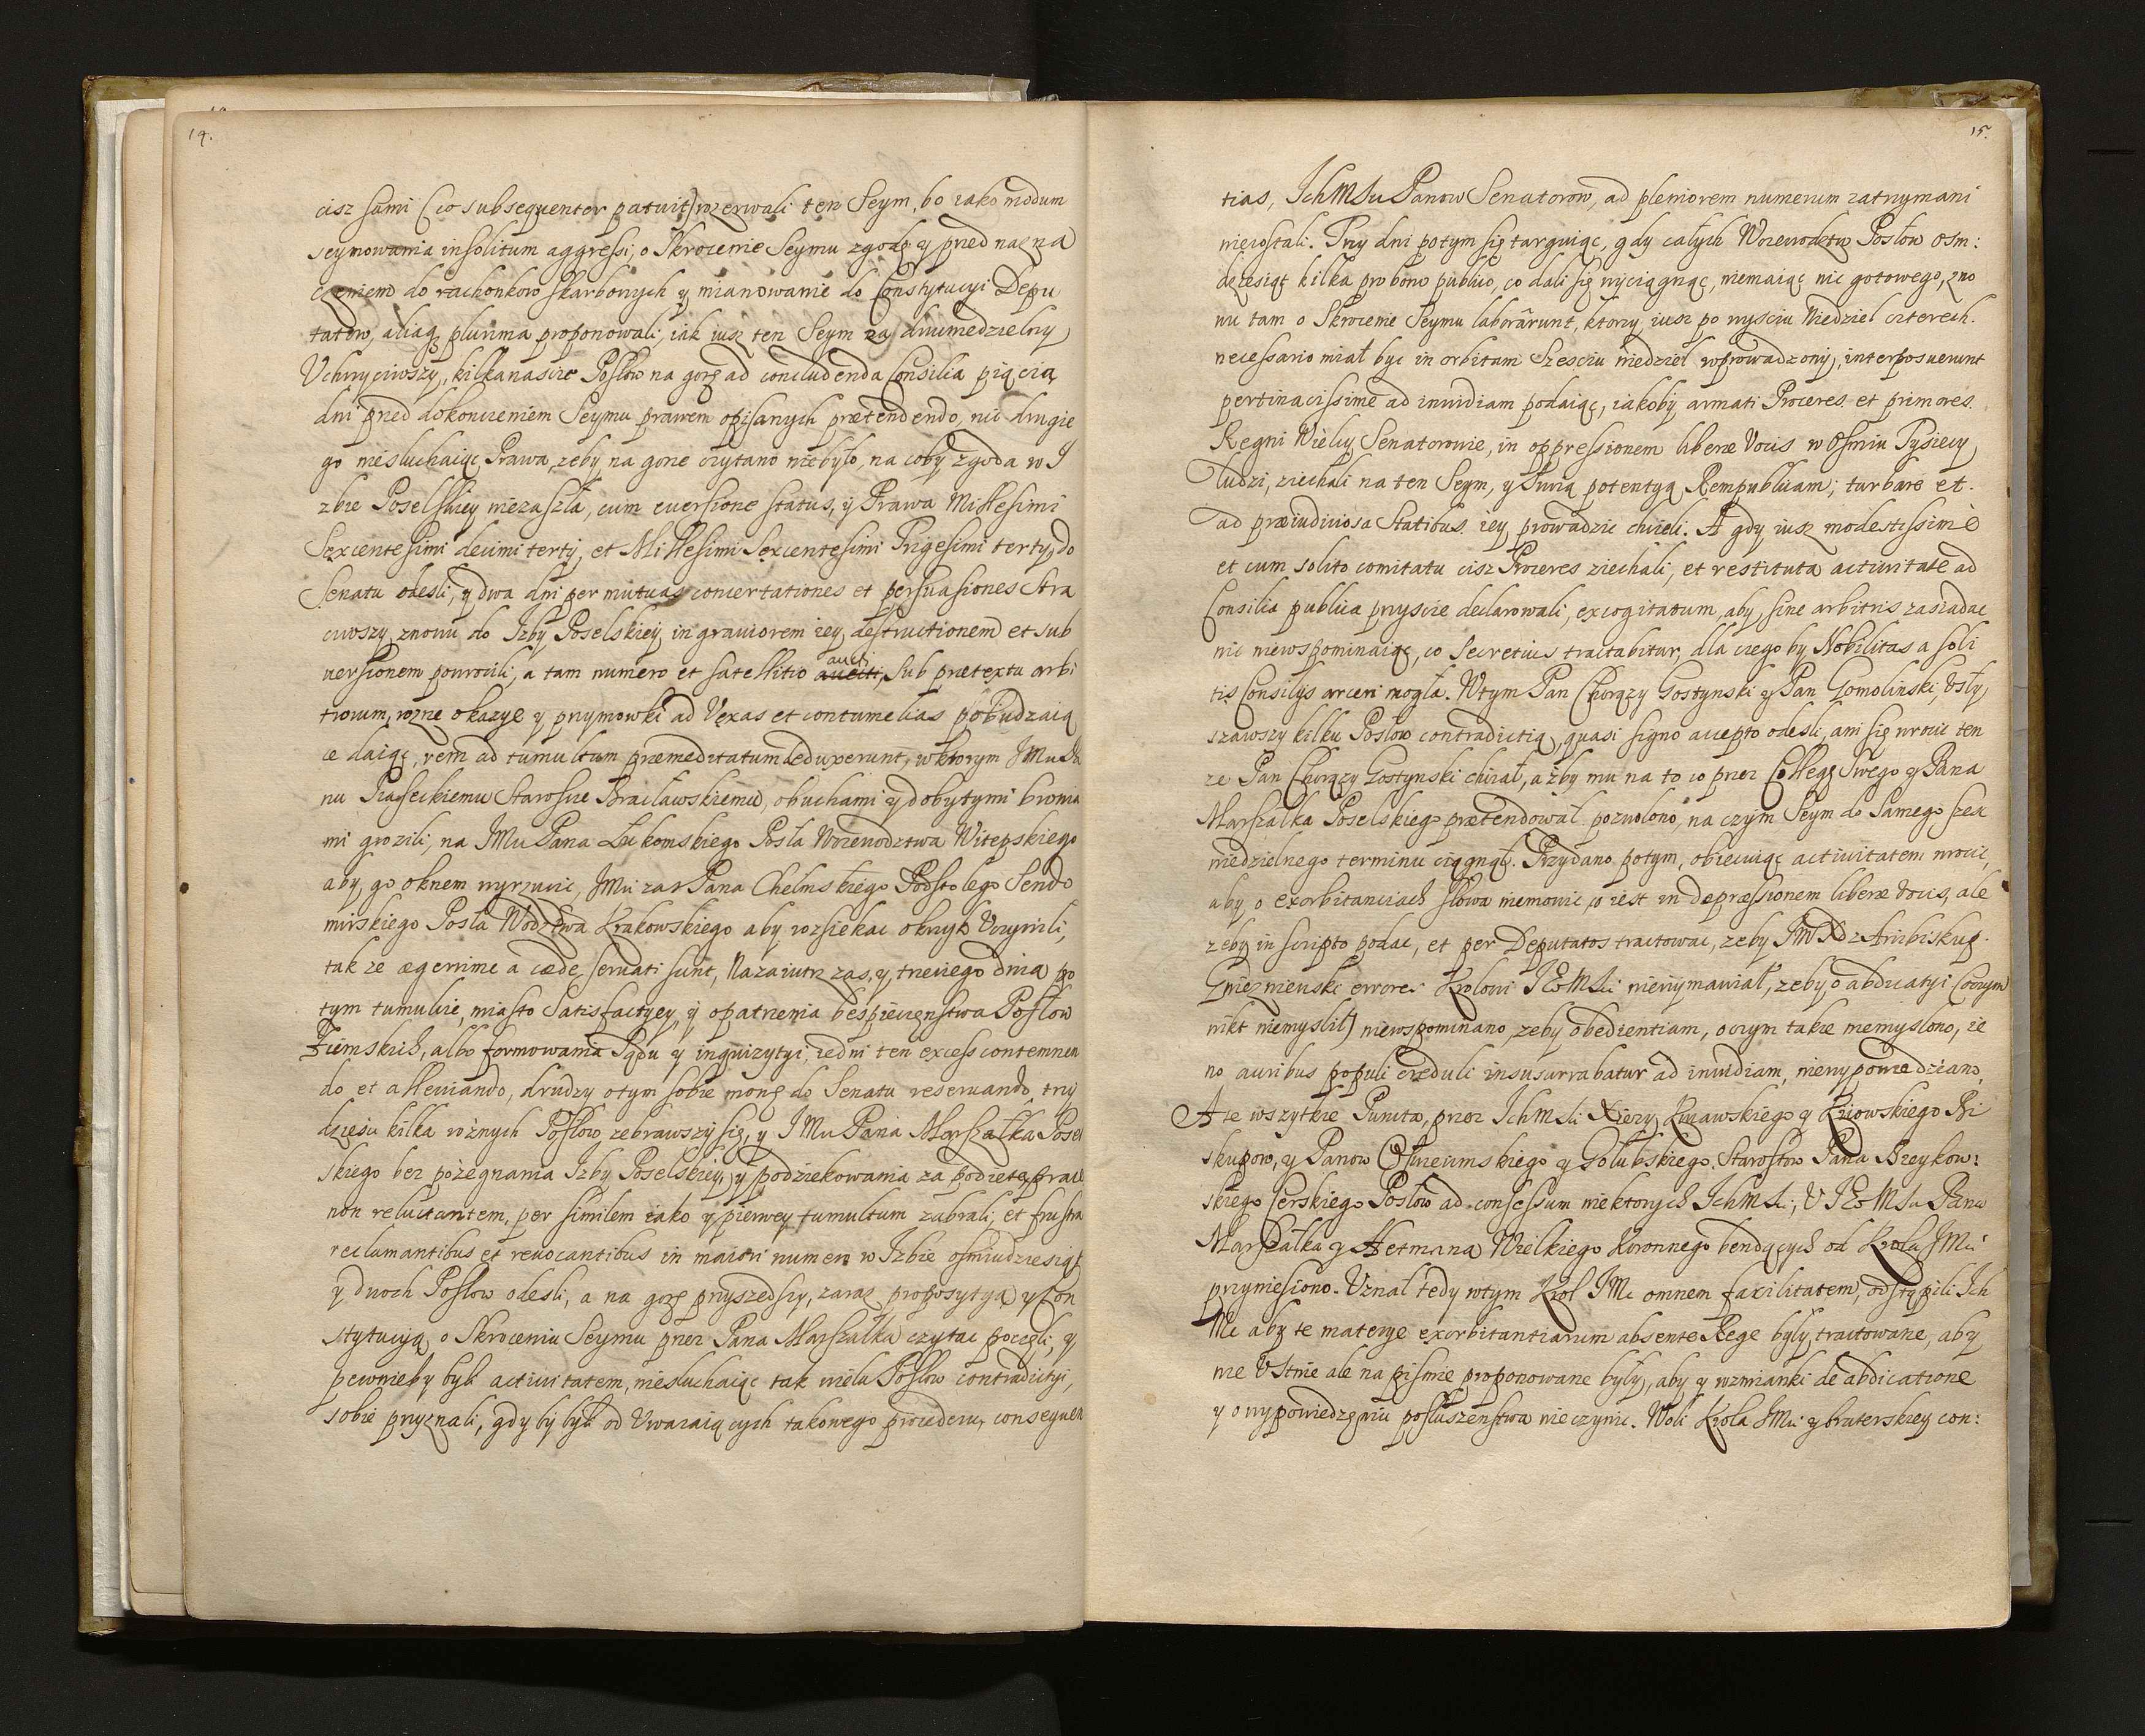 14.
cisz sami (co subsequenter patuit) rozerwali ten Seym, bo iako modum
seymowania insolitum aggressi, o Skrocenie Seymu zgodę y przed nazna
czeniem do rachonkow skarbowych y mianowanie do Constytucyi Depu
tatow, aliaq plurima proponowali, iak iusz ten Seym za dwuniedzielny
Uchwyciwszy, kilkanascie Posłow na gorę ad concludenda Consilia pięcią
dni przed dokonczeniem Seymu prawem opisanych prætendendo, nic drugie
go niesłuchaiąc Prawa, zeby na gorze czytano niebyło, na coby zgoda w I
zbie Poselskiey niezaszła, cum eversione status, y Prawa Millesimi
Sexcentesimi decimi tertij, et Millesimi Sexcentesimi Trigesimi tertij, do
Senatu odesli, y dwa dni per mutuas concertationes et persuasiones Stra
ciwszy znowu do Izby Poselskiey in graviorem iey destructionem et sub
versionem powrocili, a tam numero et satellitio aucti, sub prætextu arbi
trorum, rozne okazye y przymowki ad Vexas et contumelias pobudzaią
ce daiąc, rem ad tumultum præmeditatum deduxerunt, w ktorym JMu Pa
nu Piaseckiemu Staroscie Bracławskiemu, obuchami y dobytymi bronia
mi grozili, na JMu Pana Łukomskiego Posła Woiewodztwa Witepskiego
aby go oknem wyrzucic, JMu zas Pana Chełmskiego Podstolego Sendo
mirskiego Posła Wodztwa Krakowskiego aby rozsiekac okrzyk Uczynili,
tak ze ægerrime a cæde servati sunt, Nazaiutrz zas, y trzeciego dnia po
tym tumulcie, miasto Satisfactyey, y opatrzenia bespieczenstwa Posłow
Ziemskich, albo formowania Sądu y inquizytyi, iedni ten excess contemnen
do et alleviando, drudzy o tym sobie mowę do Senatu reservando, trzy
dziesci kilka roznych Posłow zebrawszy się, y JMu Pana Marszałka Posel
skiego bez pozegnania Izby Poselskiey, y podziekowania za podietą prace
non reluctantem, per similem iako y pierwey tumultum zabrali, et frustra
reclamantibus et revocantibus in maiori numero w Izbie osmiudziesiąt
y dwoch Posłow odesli, a na gorę przyszedszy, zaraz propozytyą y Con
stytucyą o Skroceniu Seymu przez Pana Marszałka czytac poczęli, y
pewnieby byli activitatem, niesłuchaiąc tak wielu Posłow contradictyi,
sobie przyznali, gdy by byli od Uwazaiących takowego procederu, consequen
15.
tias, IchMSciu Panow Senatorow, ad pleniorem numerum zatrzymani
niezostali. Trzy dni potym się targuiąc, gdy całych Woiewodztw Posłow osm:
dziesiąt kilka pro bono publico, co dali się wyciągnąc, niemaiąc nic gotowego, zno
wu tam o Skrocenie Seymu laborârunt, ktory iusz po wysciu Niedziel czterech
necessario miał byc in orbitam Szesciu niedziel wprowadzony, interposuerunt
pertinacissime ad invidiam podaiąc, iakoby armati Proceres et primores
Regni Wielcy Senatorowie, in oppressionem liberæ Vocis w Osmiu Tysiecy
ludzi, ziechali na ten Seym, y Swoią potentyą Rempublicam, turbare et
ad præiudiciosa Statibus iey prowadzic chcieli. A gdy iusz modestissime
et cum solito comitatu cisz Proceres ziechali, et restituta activitate ad
Consilia publica przyscie declarowali, excogitatum, aby sine arbitris zasiadac
nic niewspominaiąc, co secretius tractabitur, dla czego by Nobilitas a soli
tis Consilijs arceri mogła. W tym Pan Chorązy Gostynski y Pan Gomolinski, Usły
szawszy kilku Posłow contradictią, quasi signo accepto odesli, ani się wrocic ten
ze Pan Chorązy Gostynski chciał, ażby mu na to co przez Collegę Swego y Pana
Marszałka Poselskiego prætendował pozwolono, na czym Seym do Samego szes
niedzielnego terminu ciągnął. Przydano potym, obiecuiąc activitatem wrocic,
aby o exorbitanciach słowa niemowic, co iest in depressionem liberæ Vocis, ale
zeby in scripto podac, et per Deputatos tractowac, zeby JM Xdz Arcibiskup
Gnieznienski errores Krolowi JEoMSci niewymawiał, zeby o abdicatyi (o czym
nikt niemyslił) niewspominano, zeby obedientiam, o czym takze niemyslono, ie
no auribus populi creduli insusurrabatur ad invidiam, niewypowiedziano,
A te wszytkie Puncta, przez IchMSci Xiezy Kuiawskiego y Kiiowskiego Bi
skupow, y Panow Oswiecimskiego y Golubskiego Starostow Pana Brzeykow:
skiego Cerskiego Posłow ad consessum niektorych IchMSci, U JEoMSci Pana
Marszałka y Hetmana Wielkiego Koronnego bendących od Krola JMci
przyniesiono. Uznał tedy w tym Krol JMc omnem facilitatem, odstąpili Ich
Mc aby te materye exorbitantiarum absente Rege były tractowane, aby
nie Ustnie ale na pismie proponowane były, aby y wzmianki de abdicatione
y o wypowiedzeniu posłuszenstwa nieczynic. Woli Krola JMci y braterskiey con: